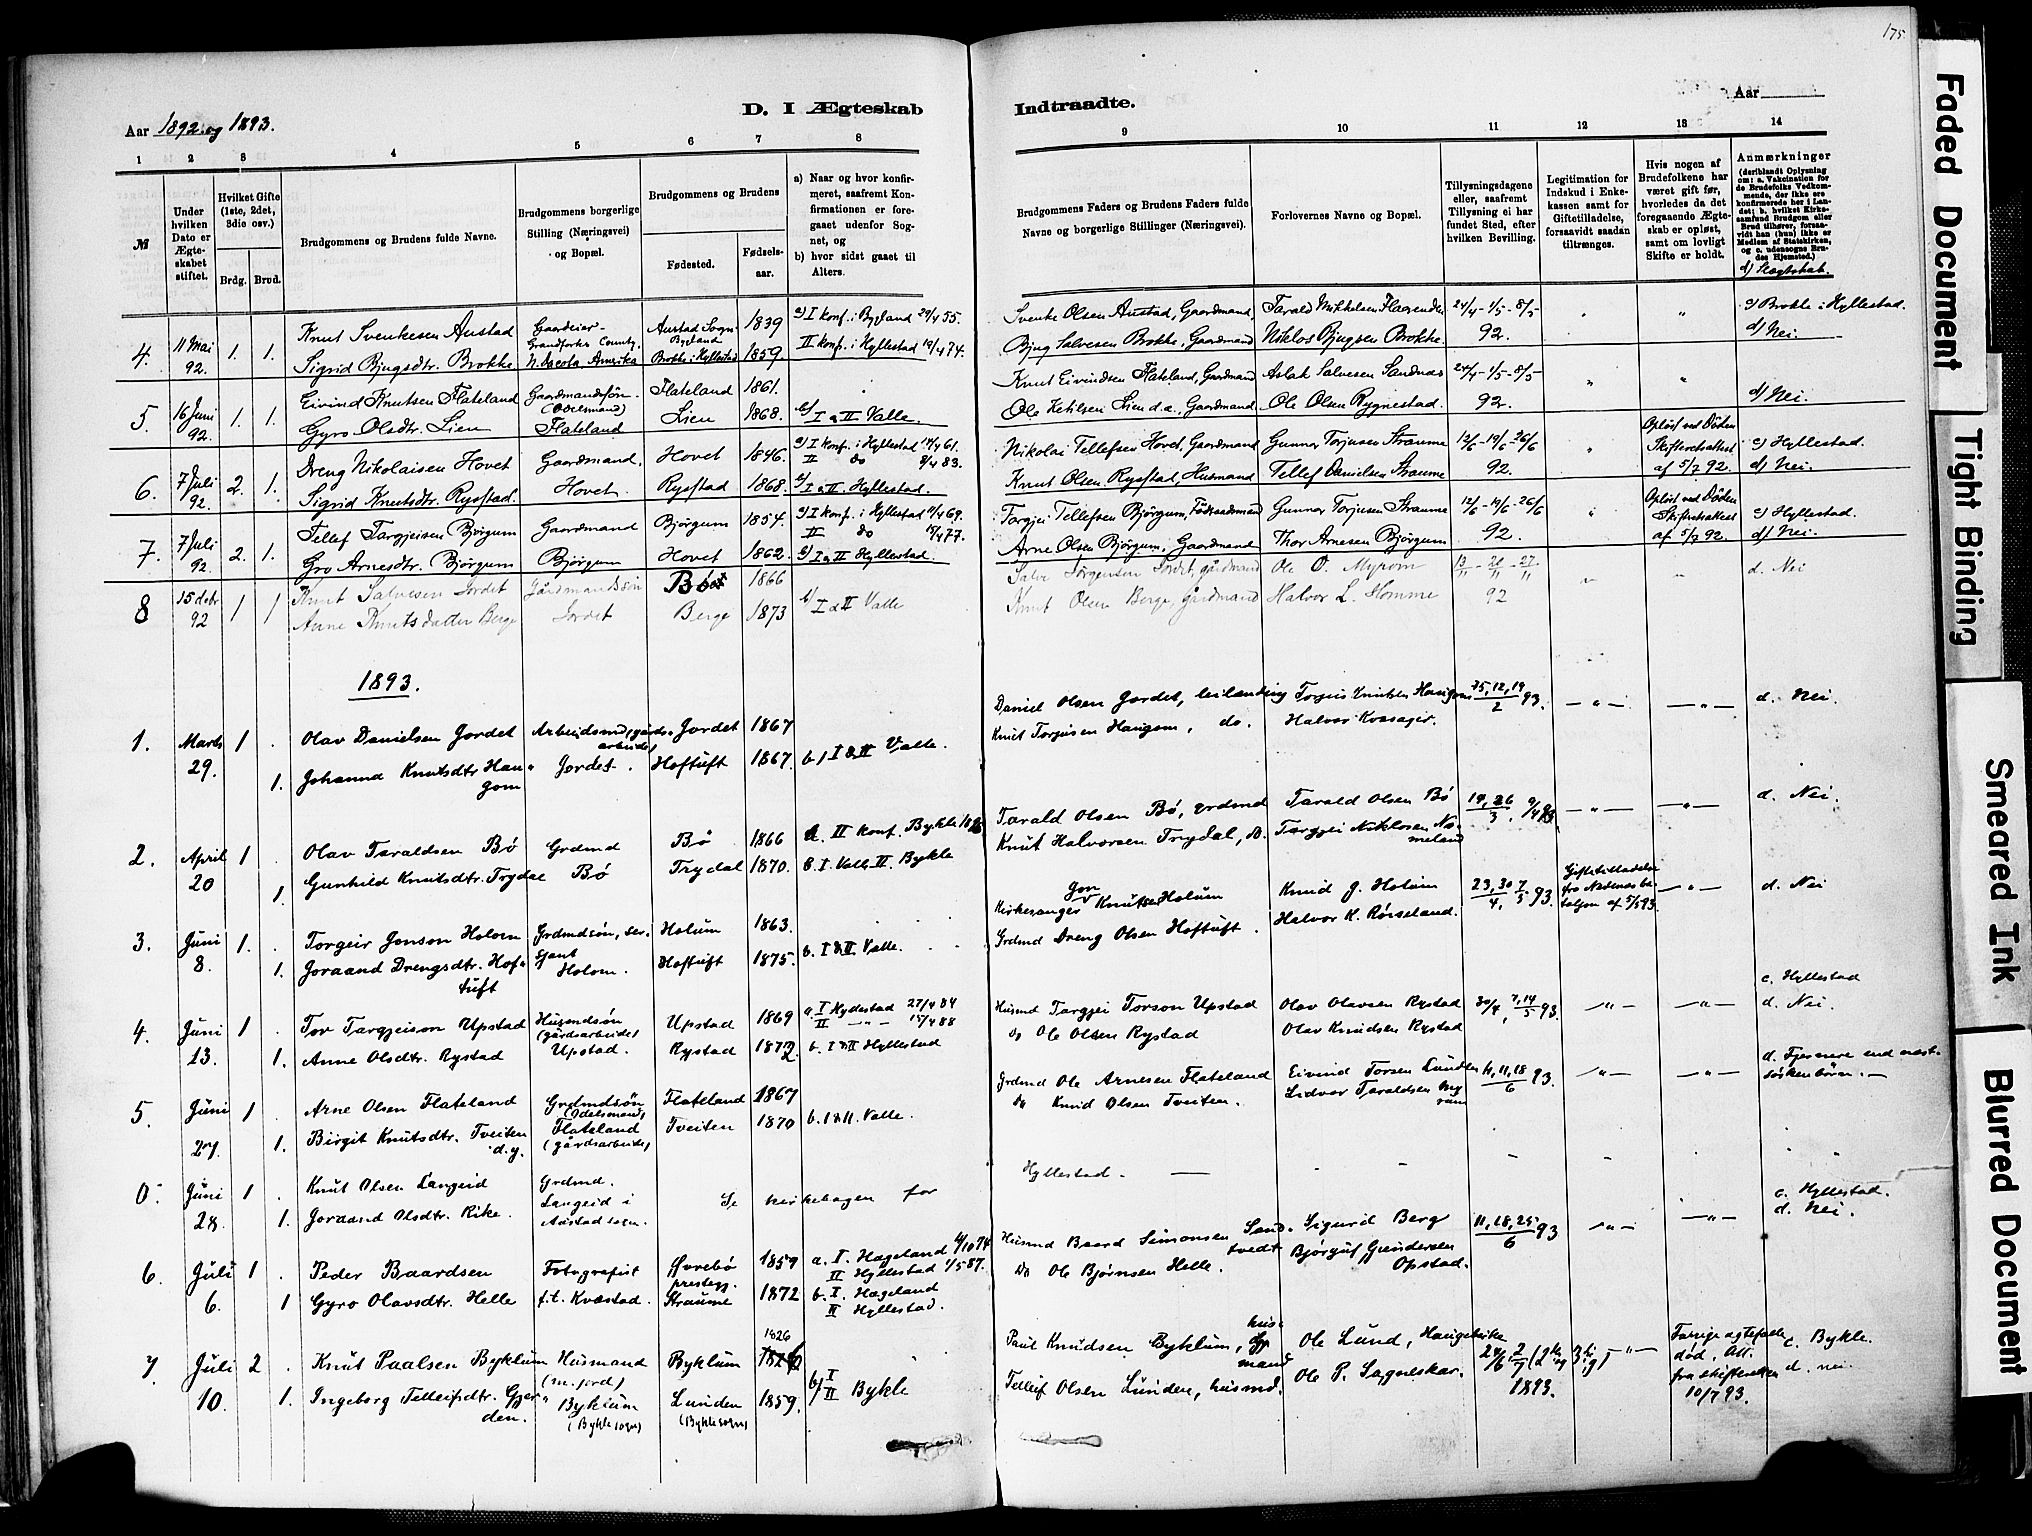 175
D. I Ægteskab
Indtraadte.
Aar 1892 og 1893.
Aar
1 2 3 4 5 6 7 8 9 10 11 12 13 14
№
Under hvilken Dato er Ægteskabet stiftet.
Hvilket Gifte (1ste, 2det, 3die osv.)
Brdg. Brud.
Brudgommens og Brudens fulde Navne.
Brudgommens borgerlige Stilling (Næringsvei) og Bopæl.
Brudgommens og Brudens
Fødested. Fødselsaar.
a) Naar og hvor konfirmeret, saafremt Konfirmationen er foregaaet udenfor Sognet, og
b) hvor sidst gaaet til Alters.
Brudgommens Faders og Brudens Faders fulde Navne og borgerlige Stillinger (Næringsvei).
Forlovernes Navne og Bopæl.
Tillysningsdagene eller, saafremt Tillysning ei har fundet Sted, efter hvilken Bevilling.
Legitimation for Indskud i Enkekassen samt for Giftetilladelse, forsaavidt saadan tiltrænges.
Hvis nogen af Brudefolkene har været gift før, hvorledes da det foregaaende Ægteskab er opløst, samt om lovligt Skifte er holdt.
Anmærkninger (deriblandt Oplysning om: a. Vakcination for de Brudefolks Vedkommende, der ikke ere konfirmerede her i Landet; b. hvilket Kirkesamfund Brudgom eller Brud tilhører, forsavidt han (hun) ikke er Medlem af Statskirken, og c. udensogns Brudes Hjemsted.)
d) Slægtskab.
4. 11 Mai 92. 1. 1. Knut Svenkesen Austad Gaardeier Grandforks County Austad Sogn Bygland 1839 a) I konf. i Bygland 29/4 55. Svenke Olsen Austad, Gaardmand Tarald Mikkelsen 24/4 - 1/5 - 8/5 c) Brokke i Hyllestad.
Sigrid Bjugsdtr. Brokke N. Dacota Amerika Brokke i Hyllestad 1859 II konf. i Hyllestad 19/4 74. Bjug Salvesen Brokke, Gaardmand Niklos Bjugsen Brokke. 92. d) Nei.
5. 16 Juni 92. 1. 1. Eivind Knutsen Flateland Gaardmandssøn (Odelsmand) Flateland 1861. Knut Eivindsen Flateland, Gaardmand Aslak Salvesen Sandnes 24/4 - 1/5 - 8/5
Gyro Olsdtr. Lien Flateland Lien 1868. b) I & II Valle. Ole Ketilsen Lien d.a., Gaardmand Ole Olsen Rygnestad. 92. d) Nei.
6. 7 Juli 92. 2. 1. Dreng Nikolaisen Hovet Gaardmand. Hovet 1846. a) I Konf. i Hyllestad 61. II do 83. Nikolai Tellefsen Hovet, Gaardmand Gunnar Torjusen Straume 12/6 - 19/6 - 26/6 Opløst ved Døden Skifteretsattest c) Hyllestad.
Sigrid Knutsdtr. Rysstad. Hovet. Rysstad 1868. b) I & II Hyllestad. Knut Olsen Rysstad, Husmand Tellef Danielsen Straume 92. af 5/7 92. d) Nei.
7. 7 Juli 92. 2. 1. Tellef Targjeisen Bjørgum Gaardmand Bjørgum 1854. a) I Konf. i Hyllestad 69. II do 77. Torgjei Tellefsen Bjørgum, Føderaadsmand Gunnar Torjusen Straume 12/6 - 19/6 - 26/6 Opløst ved Døden Skifteretsattest c) Hyllestad.
Gro Arnesdtr. Bjørgum Bjørgum Hovet 1862. b) I & II Hyllestad. Arne Olsen Bjørgum, Gaardmand Thor Arnesen Bjørgum 92. af 5/7 92. d) Nei.
8 15 debr 92 1 1 Knut Salvesen Jordet Gårdmandssøn Bø 1866 Salve Jørgensen Jordet, gårdmand Ole O. Myrom 13/11 - 20/11 - 27/11 d. Nei
Anne Knutsdatter Berge Jordet Berge 1873 b) I & II Valle Knut Olsen Berge, gårdmand Halvor L. Homme 92
1893.
1. Marts 29. 1 . Olav Danielsen Jordet Arbeidsmd, (gårdsarbeide) Jordet 1867 Daniel Olsen Jordet, leilænding Torjus Knutsen Haugom 5, 12, 19/2 93. — " — — " — d. Nei.
1. Johanna Knutsdtr Haugom Jordet. Hoftuft 1867. b. I & II Valle. Knut Torjusen Haugom, do. Halvor Kvasager.
2. April 20 1 . Olav Taraldsen Bø Grdmd Bø 1866 a. II konf. Bykle Tarald Olsen Bø, grdmd Tarald Olsen Bø 19, 26/3, 9/4 93. — " — — " — d. Nei.
1. Gunhild Knutsdtr. Trydal Bø Trydal 1870. b. I. Valle II. Bykle Knut Halvorsen Trydal, do. Targjei Niklosen Nomeland
3. Juni 8. 1. . Torgeir Jonson Holom Grdmdsøn, sersjant Holum 1863. Kirkesanger Jon Knutsen Holum Knud J. Holum 23, 30/4, 7/5 93. Giftetilladelse fra Nedenes bataljon af 5/5 93. — " — d. Nei
1. Joraand Drengsdtr. Hoftuft Holom. Hoftuft 1875. b. I & II Valle. Grdmd Dreng Olsen Hoftuft. Halvor K. Rørseland.
4. Juni 13. 1 . Tor Targjeison Upstad Husmdsøn (gårdsarbeide) Upstad 1869 a. I Hyllestad 27/4 84 II — " — 15/4 88 Husmd Targjei Torson Upstad Olav Olavsen Rystad 30/4, 7,14/5 93. — " — — " — c. Hyllestad d. Nei.
1. Anne Olsdtr. Rystad Upstad. Rystad 1872. b. I & II Hyllestad do Ole Olsen Rystad Olav Knudsen Rystad
5. Juni 27. 1 . Arne Olsen Flateland Grdmdsøn (Odelsmand) Flateland 1867 Grdmd Ole Arnesen Flateland Eivind Torsen Lunden 4, 11, 18/6 93. — " — — " — d. Fjernere end næstsøskenbørn. —
1. Birgit Knutsdtr. Tveiten d.y. Flateland (gårdsarbeide) Tveiten 1870 b. I & II. Valle. do Knud Olsen Tveiten. Lidvor Taraldsen Myrum
0. Juni 28. 1 . Knut Olsen Langeid Grdmd. Langeid i Se kirkebogen for Hyllestad. —
1. Joraand Olsdtr. Rike. Austad sogn.
6. Juli 6. 1 . Peder Baardsen Fotografist Øvrebø prestegj. 1859 a. I. Hægeland 4/10 74 II Hyllestad 1/5 87. Husmd Baard Simonsen Sandtvedt Sigurd Berg 11, 18, 25/6 93 — " — — " — c. Hyllestad. d. Nei.
1 Gyro Olavsdtr. Helle f.t. Kvæstad. Straume 1872 b. I. Hægeland II Hyllestad. Do Ole Bjørnsen Helle. Bjørguf Gundersen Opstad.
7 Juli 10. 2 . Knut Paalsen Byklum Husmand (m. jord) Byklum 1826 Paul Knudsen Byklum, husmand Ole Lund, 24/6, 2/7 1893. — " — Forrige ægtefælle død, Att. fra skifteretten 10/7 93. c. Bykle.
1. Ingeborg Tellefsdtr. Gjerden. Byklum (Bykle sogn) Lunden (Bykle sogn) 1859. b) I II Bykle Tellef Olsen Lunden, husmd. Ole P. d. nei.
Faded Document
Tight Binding
Smeared Ink
Blurred Document